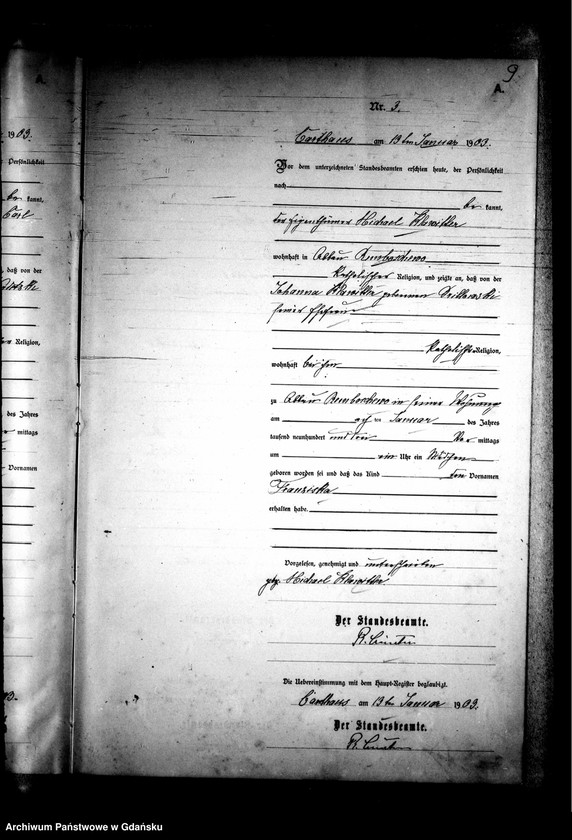 9.
A.
Nr. 3.
Carthaus am 13ten Januar 1903.
Vor dem unterzeichneten Standesbeamten erschien heute, der Persönlichkeit
nach
be kannt,
der Eigenthümer Michael Klawitter
wohnhaft in Abbau Rembochewo
katholischer Religion, und zeigte an, daß von der
Johanna Klawitter geborenen
seiner Ehefrau
katholischer Religion,
wohnhaft bei ihm
zu Abbau Rembochewo in seiner Wohnung
am Januar des Jahres
tausend neunhundert und drei Vor mittags
um ein Uhr ein Mädchen
geboren worden sei und daß das Kind den Vornamen
Franziska
erhalten habe.
Vorgelesen, genehmigt und unterschrieben
gez. Michael Klawitter
Der Standesbeamte.
Die Uebereinstimmung mit dem Haupt-Register beglaubigt.
Carthaus am 13ten Januar 1903.
Der Standesbeamte.
A.
1903.
Persönlichkeit
be kannt,
Carl
, daß von der
Religion,
des Jahres
mittags
Vornamen
03.
Archiwum Państwowe w Gdańsku